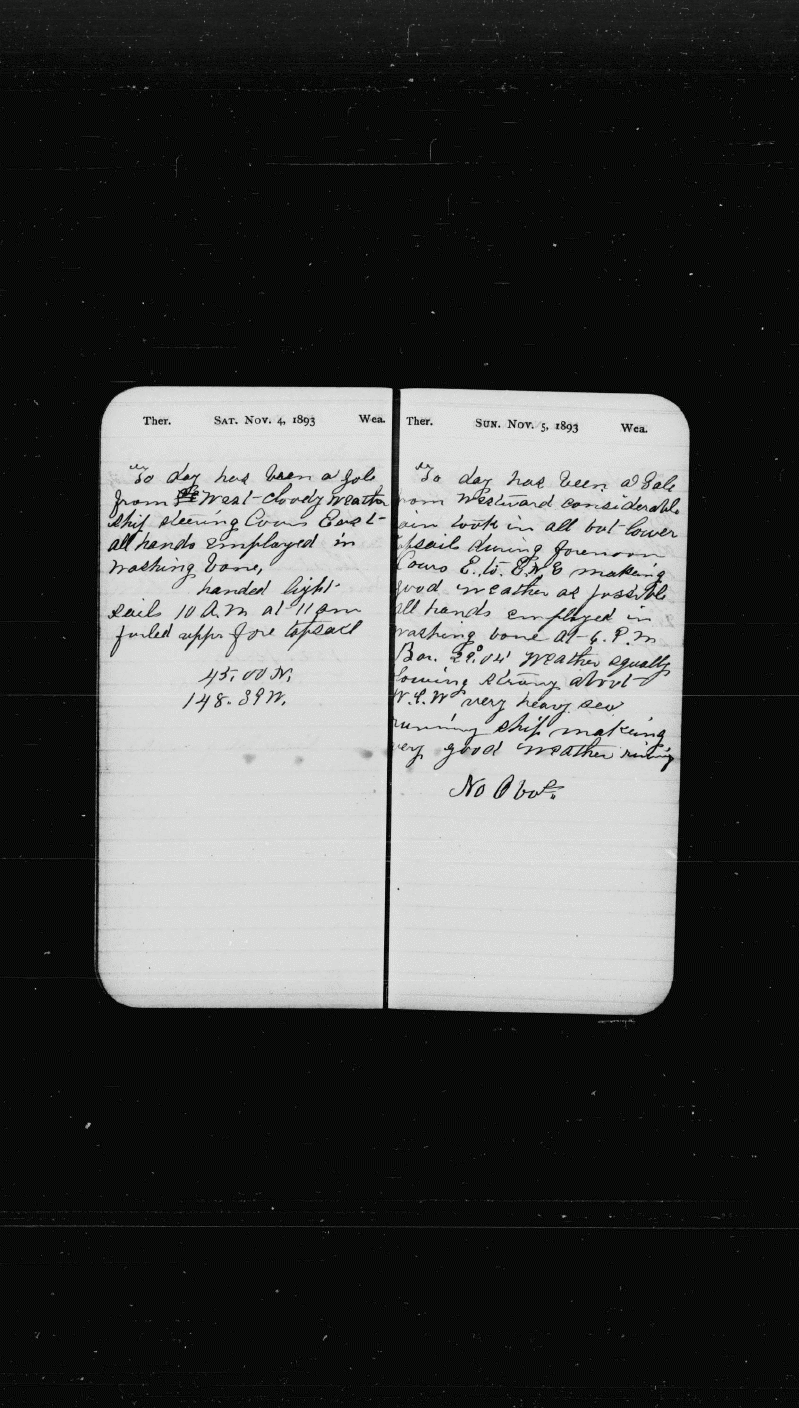 Ther. SAT. NOV. 4, 1893 Wea.
To day has been a gale
from West - cloudy weather
ship steering Cours East -
all hands employed in
washing bone,
handed light
sails 10 A.M at 11 am
furled upper fore topsail
45.00 N.
148.39 W.
Ther. SUN. NOV. 5, 1893 Wea.
To day has been a Gale
rom Westward considerable
ain took in all but lower
opsails during forenoon
Cours E. to E.N.E making
good weather as possible
all hands employed in
washing bone at 6. P.M
Bar. 29.04 Weather squally
lowing strong about
W.S.W very heavy sea
running ship making
very good weather
No Obs.